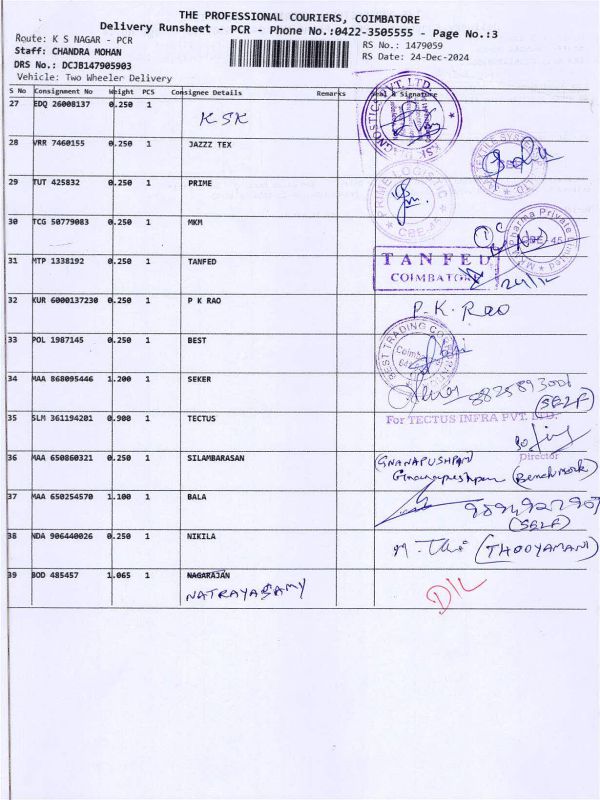 THE PROFESSIONAL COURIERS, COIMBATORE
Delivery Runsheet - PCR - Phone No.:0422-3505555 - Page No.:3
Route: K S NAGAR - PCR
RS No.: 1479059
Staff: CHANDRA MOHAN
RS Date: 24-Dec-2024
DRS No.: DCJB147905903
Vehicle: Two Wheeler Delivery
S No Consignment No Weight PCS Consignee Details Remarks Seal & Signature
27 EDQ 26008137 0.250 1
KSK
28 VRR 7460155 0.250 1 JAZZZ TEX
29 TUT 425832 0.250 1 PRIME
PRIME LOGISTIC
CBE-45
30 TCG 50779083 0.250 1 MKM
Pharma Private Limited
CBE-45
31 MTP 1338192 0.250 1 TANFED
TANFED
COIMBATORE
24/12
32 KUR 6000137230 0.250 1 P K RAO
P.K. Rao
33 POL 1987145 0.250 1 BEST
BEST TRADING CO
34 MAA 868095446 1.200 1 SEKER
8825893001
(SELF)
35 SLM 361194201 0.900 1 TECTUS
For TECTUS INFRA PVT. LTD.
Director
36 MAA 650860321 0.250 1 SILAMBARASAN
(GNANAPUSHPAN
Gnanapushpan (Benchmark)
37 MAA 650254570 1.100 1 BALA
(SELF)
38 NDA 906440026 0.250 1 NIKILA
(THOOYAMANI)
39 BOD 485457 1.065 1 NAGARAJAN
NATRAYASAMY
D/L